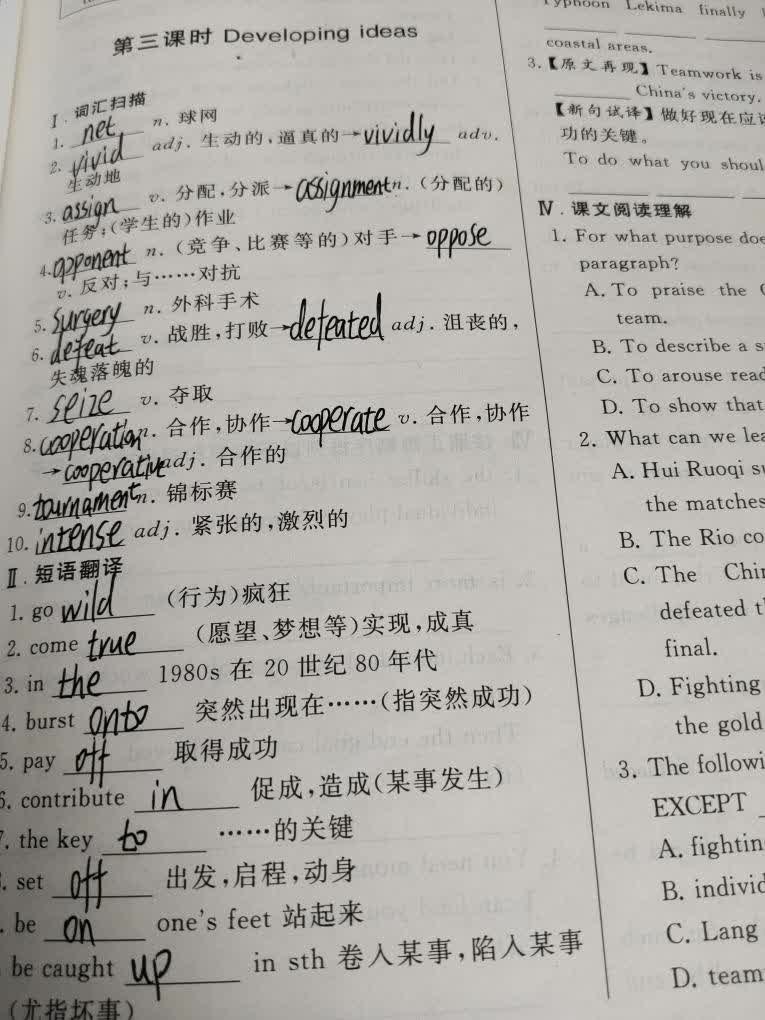 第三课时 Developing ideas
Ⅰ.词汇扫描
1. net n. 球网
2. vivid adj. 生动的,逼真的→vividly adv.
生动地
3. assign v. 分配,分派→assignment n. (分配的)
任务;(学生的)作业
4. opponent n. (竞争、比赛等的)对手→oppose
v. 反对;与……对抗
5. surgery n. 外科手术
6. defeat v. 战胜,打败→defeated adj. 沮丧的,
失魂落魄的
7. seize v. 夺取
8. cooperation n. 合作,协作→cooperate v. 合作,协作
→cooperative adj. 合作的
9. tournament n. 锦标赛
10. intense adj. 紧张的,激烈的
Ⅱ.短语翻译
1. go wild (行为)疯狂
2. come true (愿望、梦想等)实现,成真
3. in the 1980s 在 20 世纪 80 年代
4. burst onto 突然出现在……(指突然成功)
5. pay off 取得成功
6. contribute in 促成,造成(某事发生)
7. the key to ……的关键
. set off 出发,启程,动身
. be on one's feet 站起来
be caught up in sth 卷入某事,陷入某事
(尤指坏事)
Typhoon Lekima finally
coastal areas.
3.【原文再现】Teamwork is
China's victory.
【新句试译】做好现在应该
功的关键。
To do what you shoul
Ⅳ.课文阅读理解
1. For what purpose doe
paragraph?
A. To praise the
team.
B. To describe a s
C. To arouse read
D. To show that
2. What can we lea
A. Hui Ruoqi su
the matches
B. The Rio co
C. The Chin
defeated t
final.
D. Fighting
the gold
3. The followi
EXCEPT
A. fightin
B. individ
C. Lang
D. team